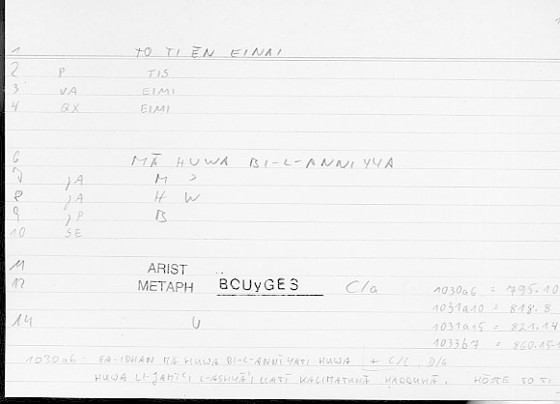 1 TO TI ĒN EINAI
2 P TIS
3 VA EIMI
4 QX EIMI
6 MĀ HUWA BI-L-ANNIYYA
7 jA M
8 jA H W
9 jP B
10 SE
11 ARIST
12 METAPH BOUyGES C/a
1030a6 = 795.10
1031a10 = 818.8
14 U 1031a15 = 821.14
1033b7 = 860.15-1
1030a6 FA-IDHAN MĀ HUWA BI-L-ANNĪYATI HUWA + C/C D/a
HUWA LI-JAMĪʿI L-ASHYĀʾI LLATĪ KALIMATUHĀ ḤADDUHĀ. HŌSTE TO TI